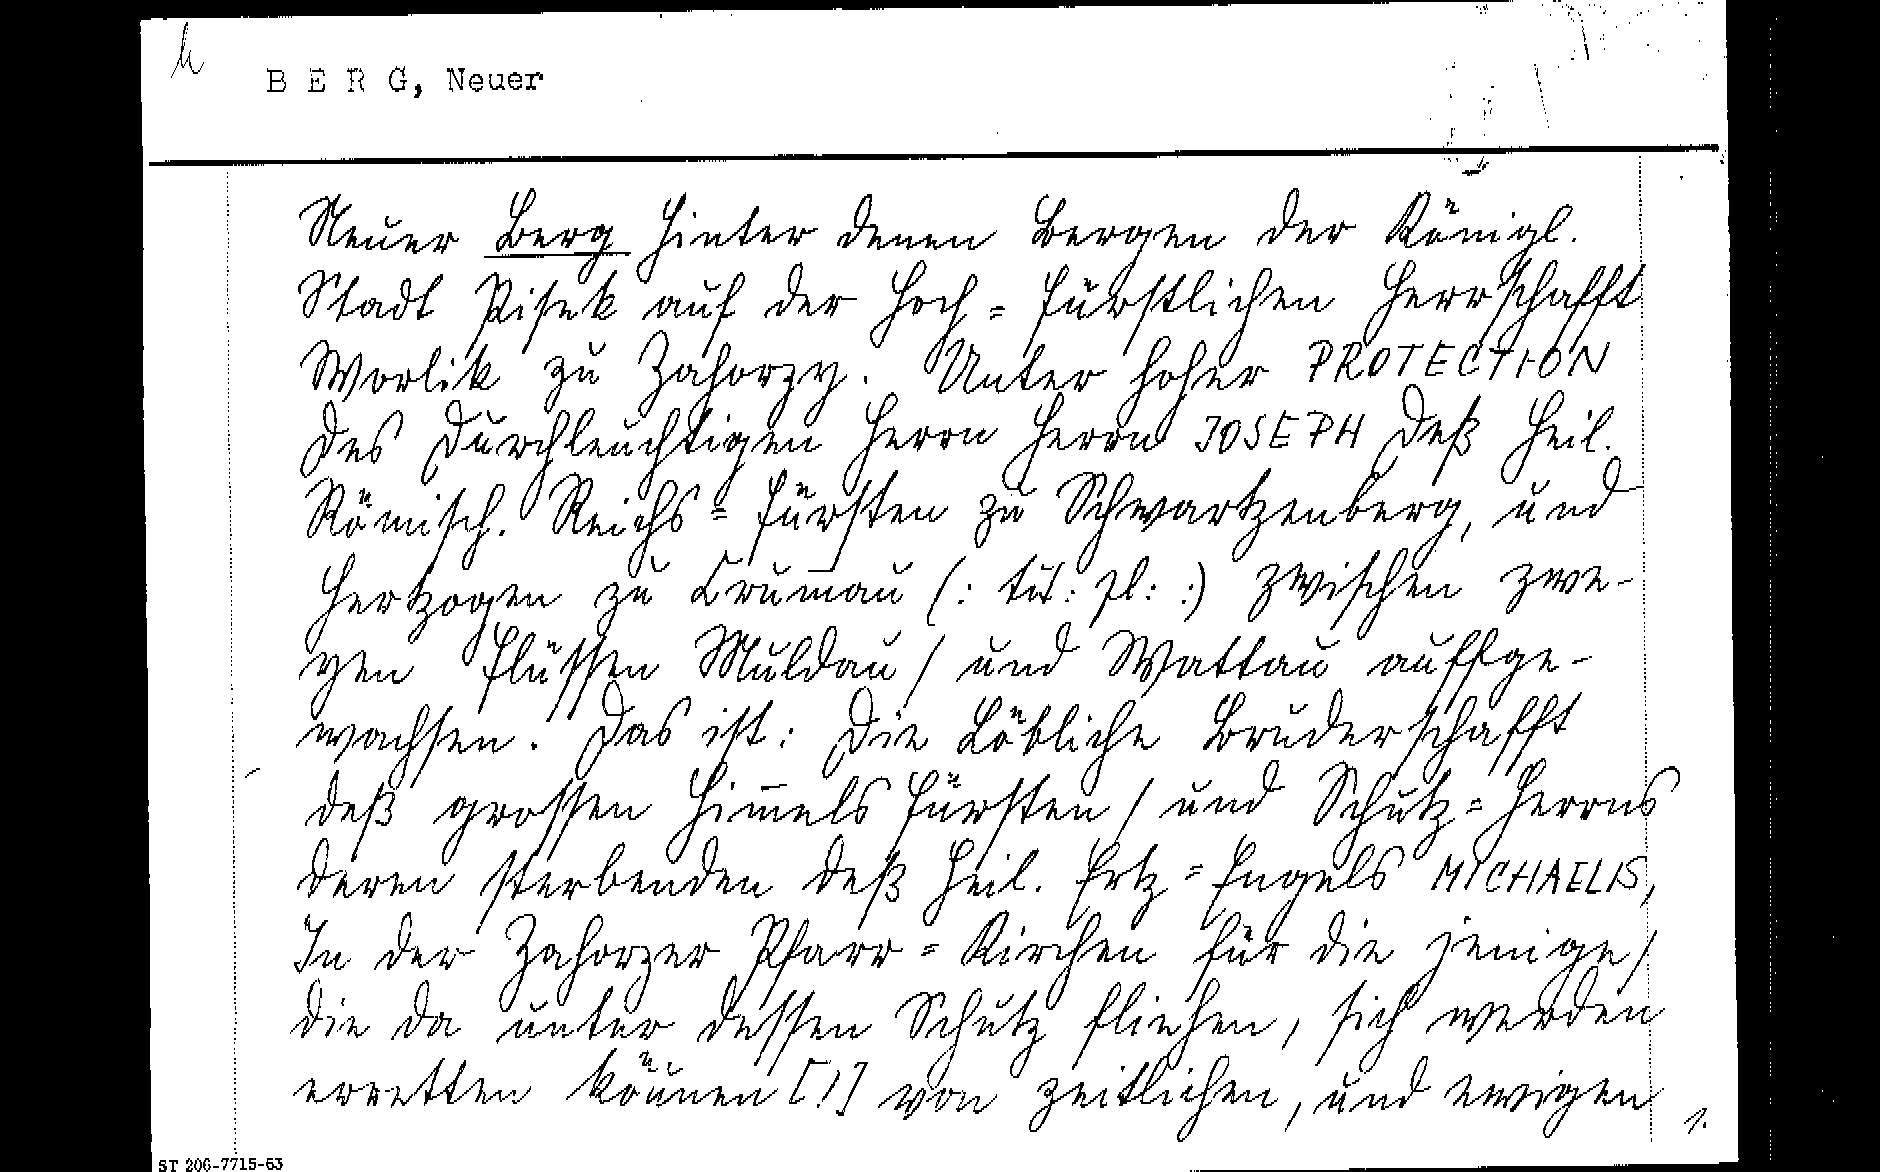 B E R G, Neuer
Neuer Berg hinter denen Bergen der Königl.
Stadt Pisek auf der Hoch=Fürstlichen Herrschafft
Worlik zu Zahorzy. Unter hoher PROTECTION
des Durchleuchtigen Herrn Herrn JOSEPH deß Heil.
Römisch. Reichs=Fürsten zu Schwartzenberg, und
Hertzogen zu Crum̄au (: tit: pl: :) zwischen zwe-
yen Flüssen Muldau / und Wattau auffge-
wachsen. Das ist: Die Löbliche Bruderschafft
deß grossen Him̄els Fürsten / und Schutz=Herrns
deren sterbenden deß Heil. Ertz=Engels MICHAELIS,
In der Zahorzer Pfarr=Kirchen für die jenige /
die da unter dessen Schutz fliehen, sich werden
erretten köunen [!] von zeitlichen, und ewigen
1.
ST 206-7715-63